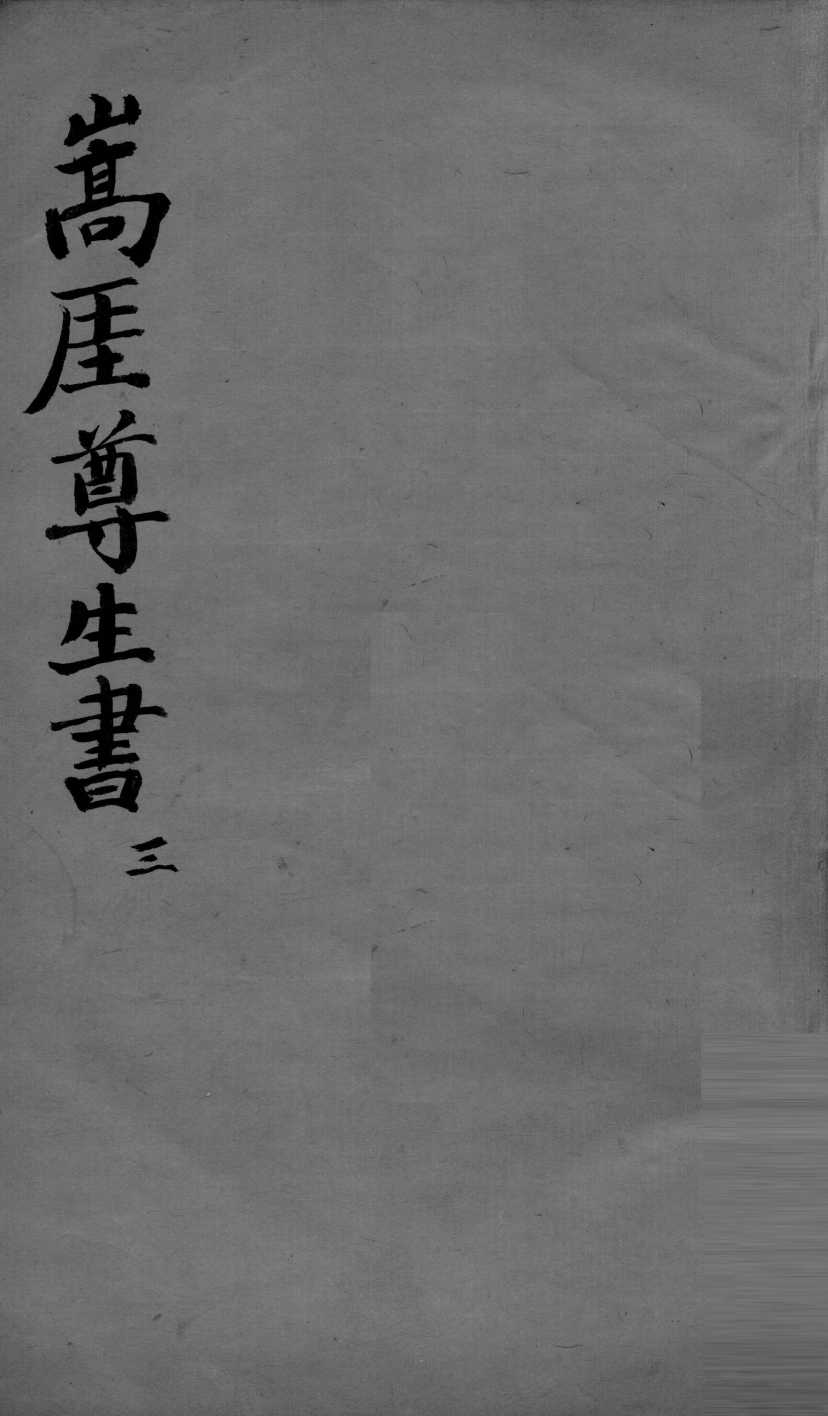 嵩厓尊生書
三